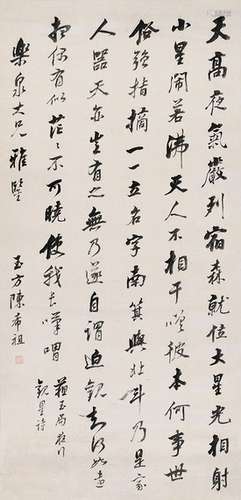 天高夜氣嚴列宿森就位大星光相射
小星鬧若沸天人不相干嗟彼本何事世
俗強指摘一一立名字南箕與北斗乃是家
人器天亦豈有之無乃遂自謂迫觀知何如遠
想偶有似茫茫不可曉使我長嘆喟
蘇玉局夜行
觀星詩
樂泉大兄雅鑒
玉方陳希祖